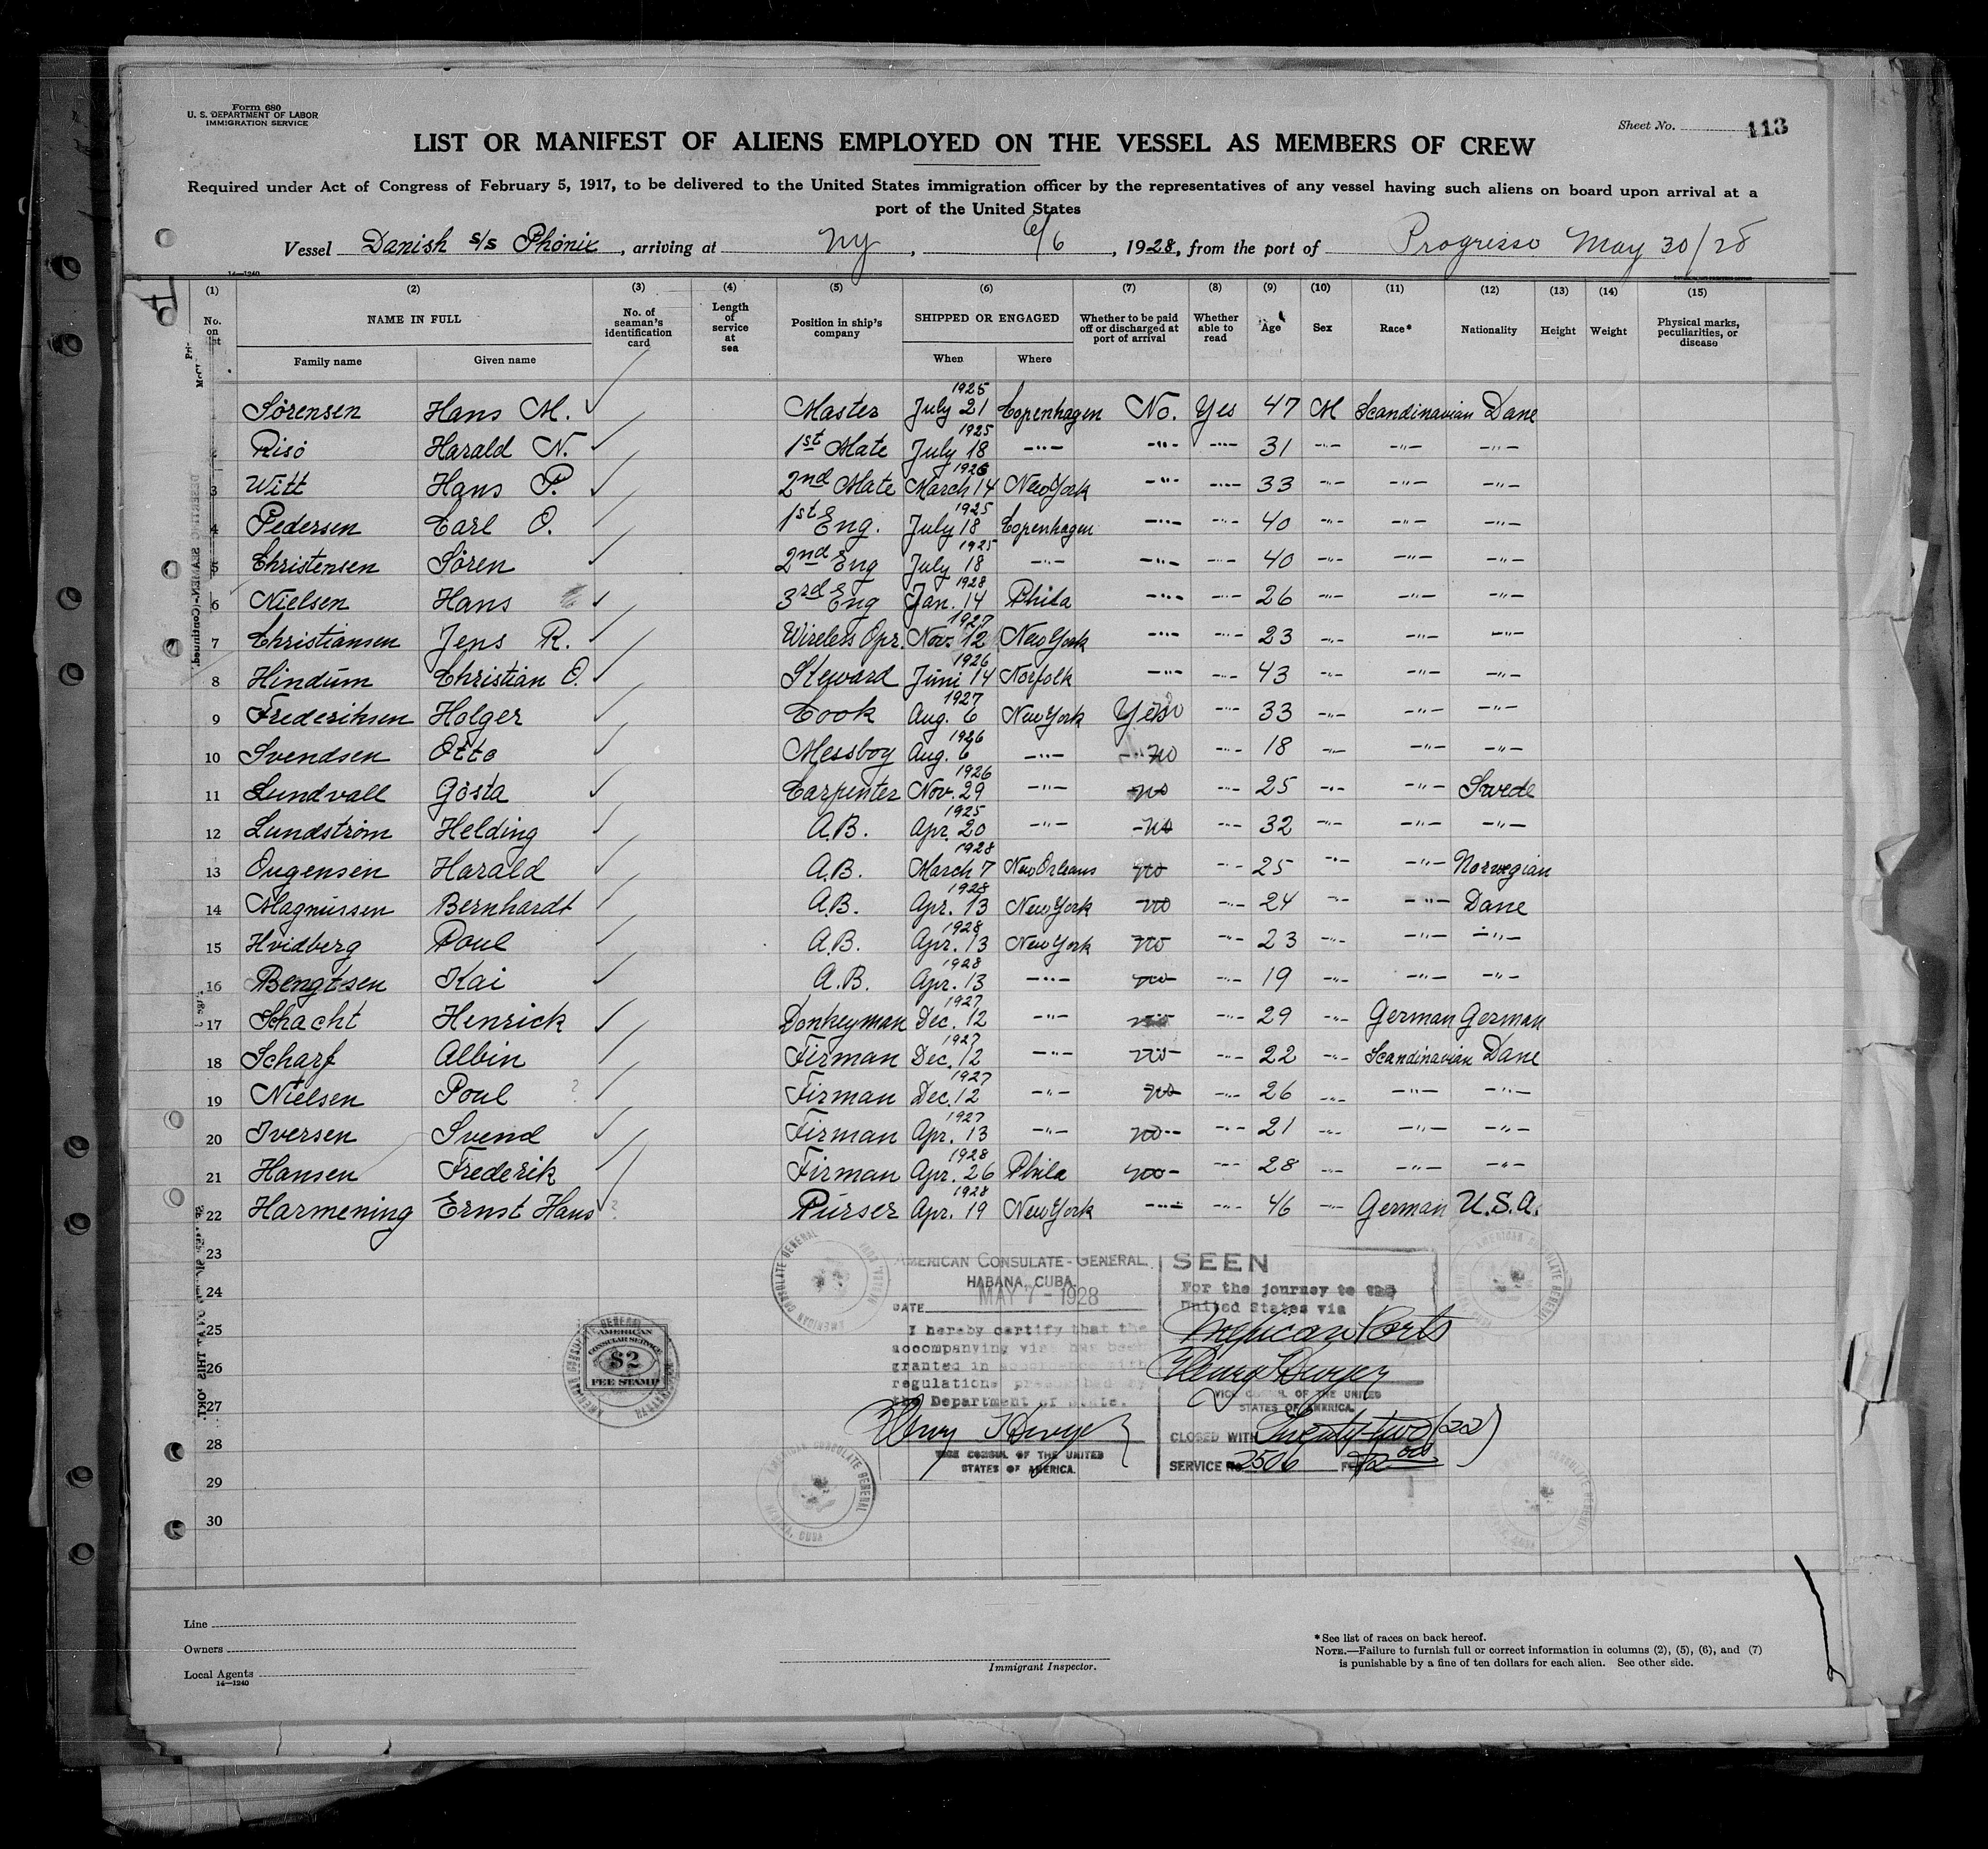 Form 680
U. S. DEPARTMENT OF LABOR
IMMIGRATION SERVICE
Sheet No. 113
LIST OR MANIFEST OF ALIENS EMPLOYED ON THE VESSEL AS MEMBERS OF CREW
Required under Act of Congress of February 5, 1917, to be delivered to the United States immigration officer by the representatives of any vessel having such aliens on board upon arrival at a
port of the United States
Vessel Danish s/s Phönix, arriving at NY, 6/6, 1928, from the port of Progresso May 30/28
14—1240
(1) (2) (3) (4) (5) (6) (7) (8) (9) (10) (11) (12) (13) (14) (15)
No. on list NAME IN FULL Family name Given name No. of seaman's identification card Length of service at sea Position in ship's company SHIPPED OR ENGAGED When Where Whether to be paid off or discharged at port of arrival Whether able to read Age Sex Race* Nationality Height Weight Physical marks, peculiarities, or disease
Sörensen Hans M. ✓ Master 1925 July 21 Copenhagen No. Yes 47 M Scandinavian Dane
2 Risö Harald N. ✓ 1st Mate 1925 July 18 —"— —"— —"— 31 —"— —"— —"—
3 Witt Hans P. ✓ 2nd Mate 1926 March 14 New York —"— —"— 33 —"— —"— —"—
4 Pedersen Carl O. ✓ 1st Eng. 1925 July 18 Copenhagen —"— —"— 40 —"— —"— —"—
5 Christensen Sören ✓ 2nd Eng 1925 July 18 —"— —"— —"— 40 —"— —"— —"—
6 Nielsen Hans ✓ 3rd Eng 1928 Jan. 14 Phila —"— —"— 26 —"— —"— —"—
7 Christiansen Jens R. ✓ Wireless Opr. 1927 Nov. 12 New York —"— —"— 23 —"— —"— —"—
8 Hindum Christian O. ✓ Steward 1926 Juni 14 Norfolk —"— —"— 43 —"— —"— —"—
9 Frederiksen Holger ✓ Cook 1927 Aug. 6 New York Yes —"— 33 —"— —"— —"—
10 Svendsen Otto ✓ Messboy 1926 Aug. 6 —"— no —"— 18 —"— —"— —"—
11 Lundvall Gösta ✓ Carpenter 1926 Nov. 29 —"— no —"— 25 —"— —"— Swede
12 Lundström Helding ✓ A.B. 1925 Apr. 20 —"— no —"— 32 —"— —"— —"—
13 Ougensen Harald ✓ A.B. 1928 March 7 New Orleans no —"— 25 —"— —"— Norwegian
14 Magnussen Bernhardt ✓ A.B. 1928 Apr. 13 New York no —"— 24 —"— —"— Dane
15 Hvidberg Poul ✓ A.B. 1928 Apr. 13 New York no —"— 23 —"— —"— —"—
16 Bengtsen Kai ✓ A.B. 1928 Apr. 13 —"— no —"— 19 —"— —"— —"—
17 Schacht Henrick ✓ Donkeyman 1927 Dec. 12 —"— no —"— 29 —"— German German
18 Scharf Albin ✓ Firman 1927 Dec. 12 —"— no —"— 22 —"— Scandinavian Dane
19 Nielsen Poul ? ✓ Firman 1927 Dec. 12 —"— no —"— 26 —"— —"— —"—
20 Iversen Svend ✓ Firman 1927 Apr. 13 —"— no —"— 21 —"— —"— —"—
21 Hansen Frederik ✓ Firman 1928 Apr. 26 Phila no —"— 28 —"— —"— —"—
22 Harmening Ernst Hans ✓ ? Purser 1928 Apr. 19 New York —"— —"— 46 —"— German U.S.A.
23
24
25
26
27
28
29
30
AMERICAN CONSULATE-GENERAL
HABANA, CUBA
DATE MAY 7 - 1928
I hereby certify that the
accompanying visa has been
granted in accordance with
regulations prescribed by
the Department of State.
VICE CONSUL OF THE UNITED
STATES OF AMERICA.
SEEN
For the journey to the
United States via
Mexican Ports
Henry T Dwyer
VICE CONSUL OF THE UNITED
STATES OF AMERICA.
CLOSED WITH Twenty-two (22)
SERVICE No. 2506 FEE $2.00
AMERICAN
CONSULAR SERVICE
$2
FEE STAMP
AMERICAN CONSULATE GENERAL
Line
Owners
Local Agents
14—1240
Immigrant Inspector.
* See list of races on back hereof.
NOTE.—Failure to furnish full or correct information in columns (2), (5), (6), and (7)
is punishable by a fine of ten dollars for each alien. See other side.